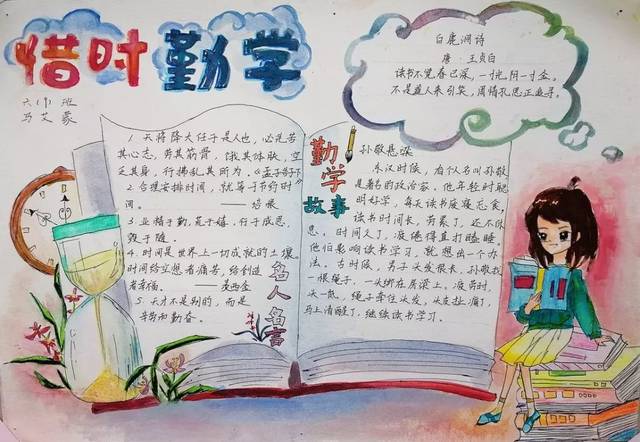 惜时勤学
六(1)班
马艾蒙
白鹿洞诗
唐 王贞白
读书不觉春已深，一寸光阴一寸金。
不是道人来引笑，周情孔思正追寻。
1.天将降大任于是人也，必先苦
其心志，劳其筋骨，饿其体肤，空
乏其身，行拂乱其所为。《孟子告子下》
2.合理安排时间，就等于节约时
间。 ——培根
3.业精于勤，荒于嬉，行于成思，
毁于随。
4.时间是世界上一切成就的土壤。
时间给空想者痛苦，给创造
者幸福。 ——麦西金
5.天才不是别的，而是
辛劳和勤奋。
名人名言
勤学故事
孙敬悬梁
东汉时候，有个人名叫孙敬
是著名的政治家，他年轻时聪
明好学，每天读书废寝忘食，
读书时间长，劳累了，还不休
息。时间久了，疲倦得直打瞌睡。
他怕影响读书学习，就想出一个办
法。古时候，男子头发很长，孙敬找
一根绳子，一头绑在房梁上。疲劳时，
头一低，绳子牵住头发，头皮扯痛了，
马上清醒了，继续读书学习。